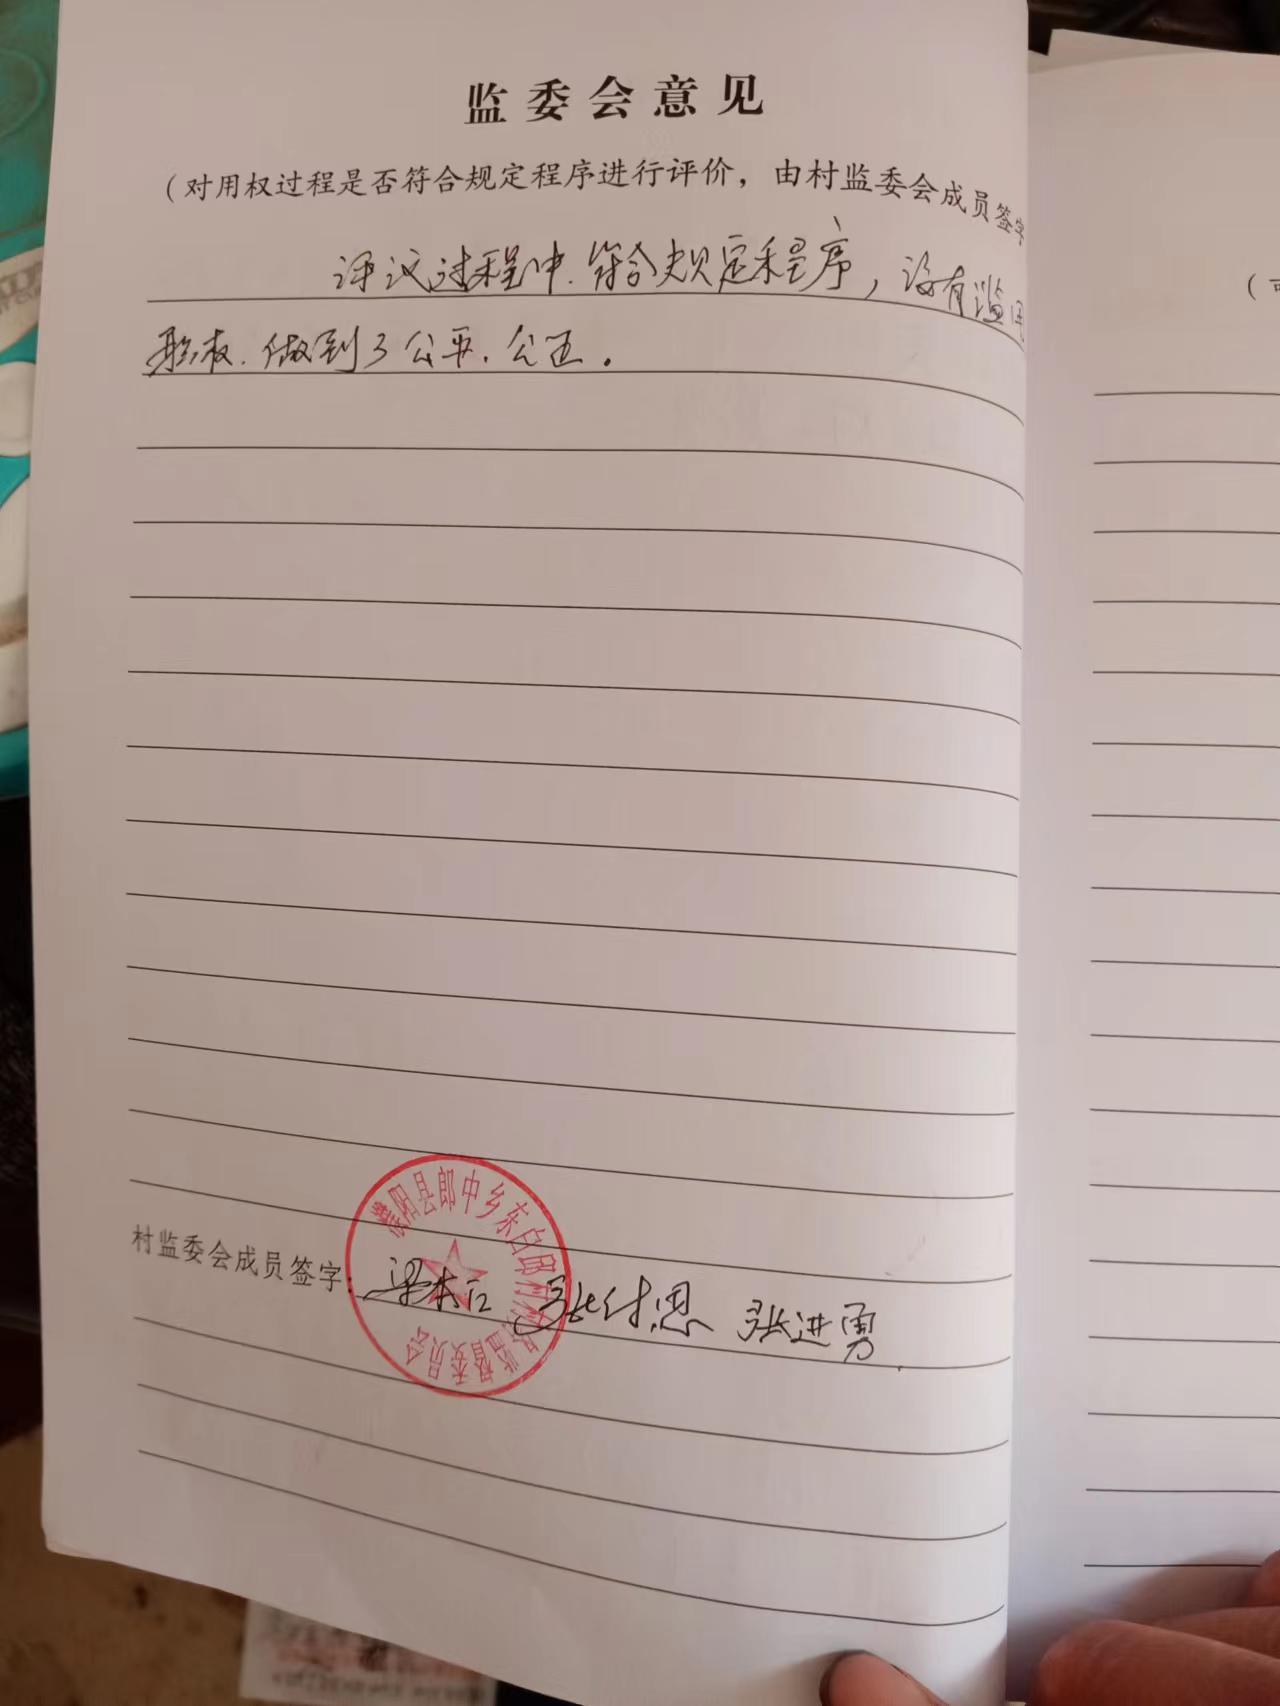 监委会意见
（对用权过程是否符合规定程序进行评价，由村监委会成员签字
评议过程中.符合规定程序，没有滥用
职权.做到了公平.公正。
村监委会成员签字：
张付恩 张进勇
濮阳县郎中乡东白邵村村务监督委员会
（